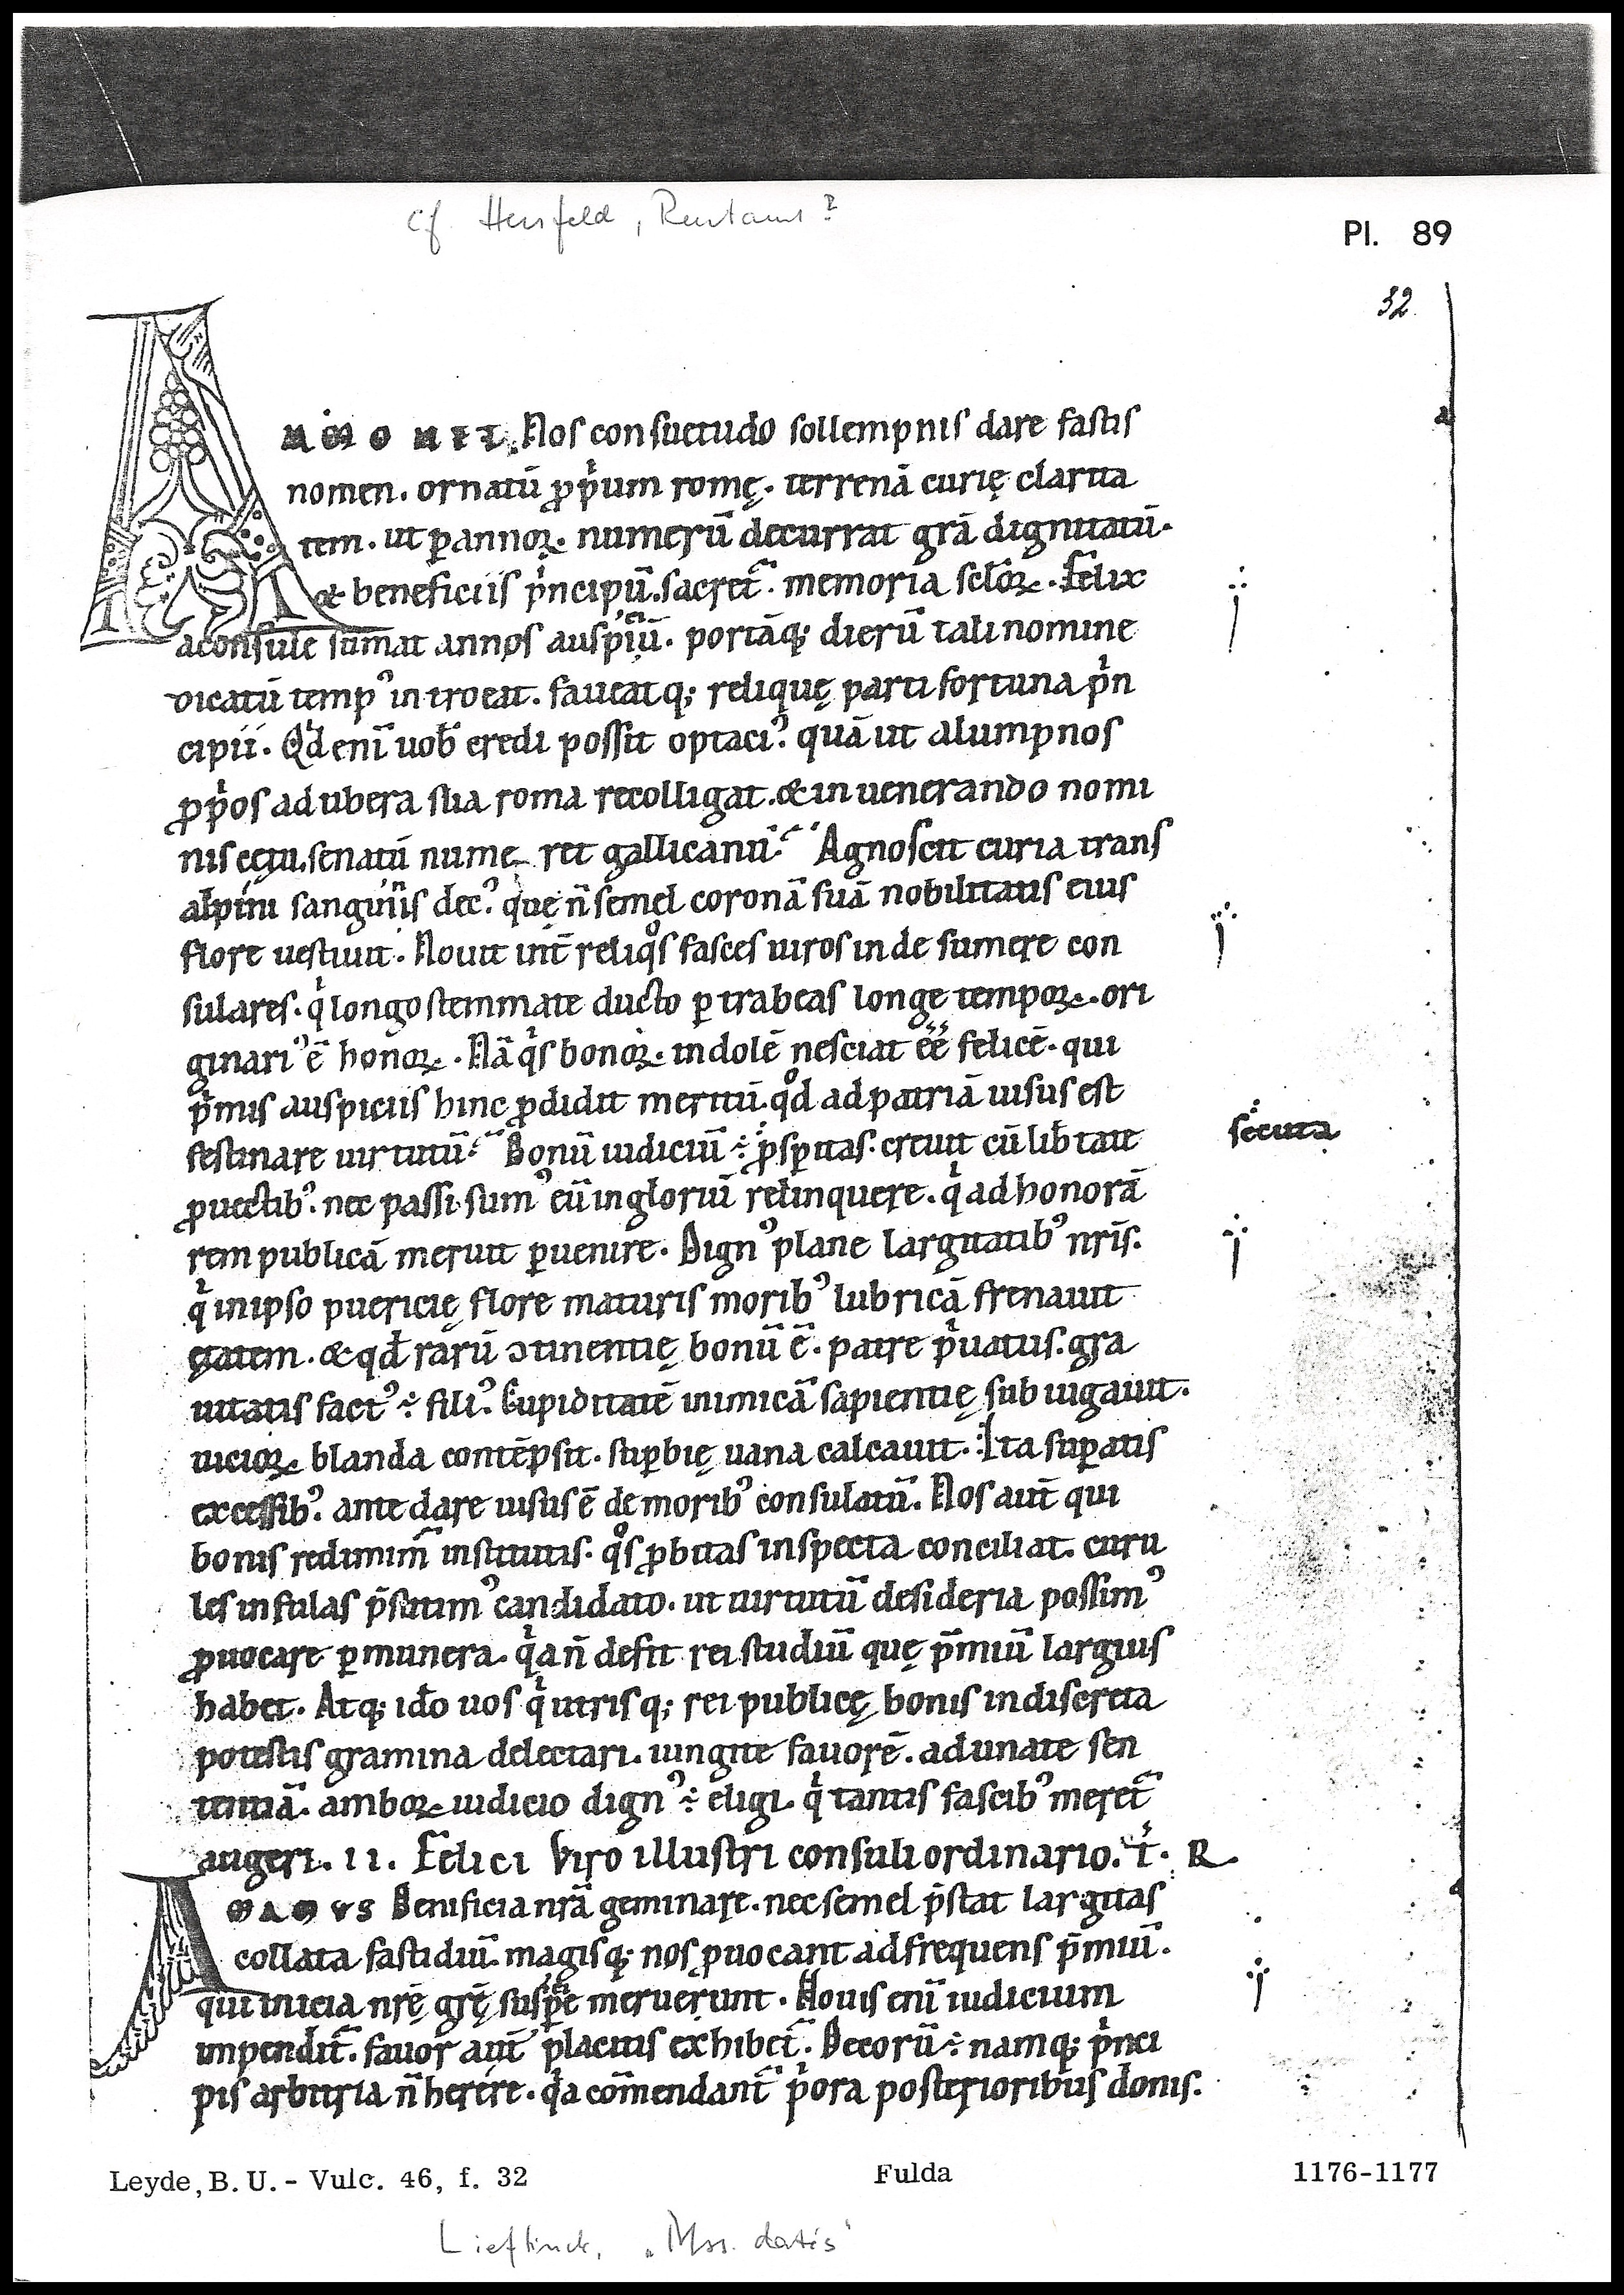 cf. Hersfeld,
Pl. 89
32
AMONET. Nos consuetudo sollempnis dare fastis
nomen. ornatū ꝓpͥum romę. terrenā curię clarita
tem. ut ꝑ annoꝝ. numerū decurrat grā dignitatū.
& beneficiis pͥncipū. sacret᷑. memoria sc̄loꝝ. Felix
a consule sumat annos auspiciū. portāq; dierū tali nomine
dicatū tempꝰ introeat. faueatq; reliquę parti fortuna pͥn
cipii. Qͥd enī uob̄ credi possit optaciꝰ. quā ut alumpnos
ꝓpͥos ad ubera sua roma recolligat. & in uenerando nomi
nis cętu. senatū nume ret gallicanū. Agnoscit curia trans
alpini sanguinis decꝰ. quę n̄ semel coronā suā nobilitatis eius
flore uestiuit. Nouit int̄ reliqͦs fasces uiros inde sumere con
sulares. qͥ longo stemmate ducto ꝑ trabeas longe tempoꝝ. ori
ginariꝰ ē honoꝝ. Nā qͥs bonoꝝ. indolē nesciat ēē felicē. qui
pͥmis auspiciis hinc ꝓdidit meritū. qͦd ad patriā uisus est
festinare uirtutū. Bonū iudiciū ÷ ꝓsꝑitas. creuit cū lib̄tate
secuta
ꝓuectibꝰ. nec passi sumꝰ eū ingloriū relinquere. qͥ ad honorā
rem publicā meruit ꝑuenire. Dignꝰ plane largitatibꝰ nr̄is.
qͥ in ipso puericię flore maturis moribꝰ lubricā frenauit
ętatem. & qd̄ rarū ɔtinentię bonū ē. patre pͥuatus. gra
uitatis factꝰ ÷ filiꝰ. Cupiditatē inimicā sapientię subiugauit.
uicioꝝ blanda contēpsit. suꝑbię uana calcauit. Ita suꝑatis
excessibꝰ. ante dare uisus ē de moribꝰ consulatū. Nos aut̄ qui
bonis redimim̄ institutis. qͦs ꝓbitas inspecta conciliat. curu
les infulas p̄stitimꝰ candidato. ut uirtutū desideria possimꝰ
ꝓuocare ꝑ munera. qͥa n̄ defit rei studiū quę p̄miū largius
habet. Atq; id̄o uos qͥ utrisq; rei publicę bonis indiscreta
potestis gramina delectari. iungite fauorē. adunate sen
tentiā. amboꝝ iudicio dignꝰ ÷ eligi. qͥ tantis fascibꝰ meret᷑
augeri. II. Felici Viro illustri consuli ordinario. T. R.
AMAMVS Benificia nr̄a geminare. nec semel p̄stat largitas
collata fastidiū. magisq; nos ꝓuocant ad frequens p̄miū.
qui inicia nr̄ę gr̄ę suscipe meruerunt. Nouis enī iudicium
inpendit᷑. fauor aut̄ placitis exhibet᷑. Decorū ÷ namq; pͥnci
pis arbitria n̄ herere. qͥa com̄endant᷑ pͥora posterioribus donis.
Leyde, B. U. - Vulc. 46, f. 32
Fulda
1176-1177
Lieftinck, „Mss. datés"